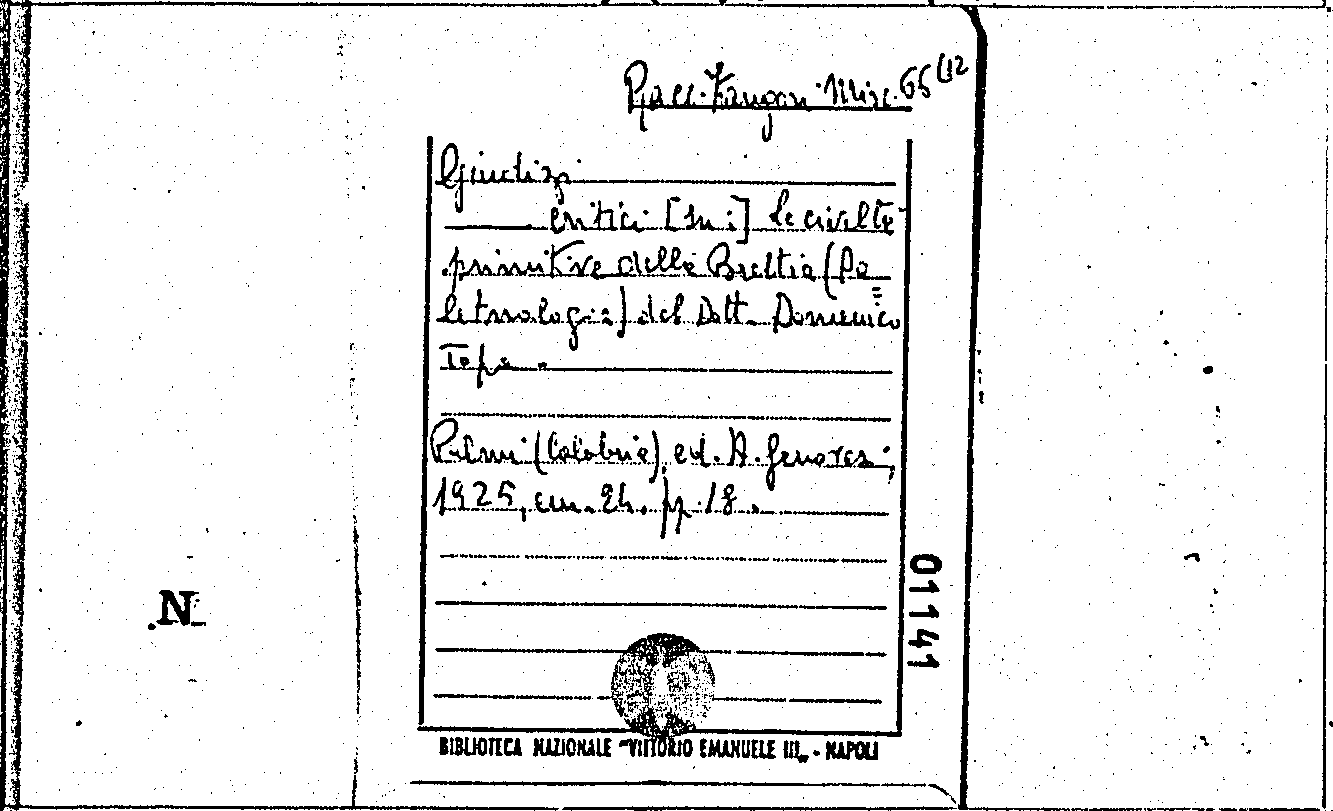 Racc. Zangari Misc. 66(12
Giudizi
critici [su:] Le civiltà
primitive della Brettia (Pa=
letnologia) del Dott. Domenico
Topa.
Palmi (Calabria), ed. A. Genovesi,
1925, cm. 24. pp. 18.
01141
N
BIBLIOTECA NAZIONALE "VITTORIO EMANUELE III„ - NAPOLI